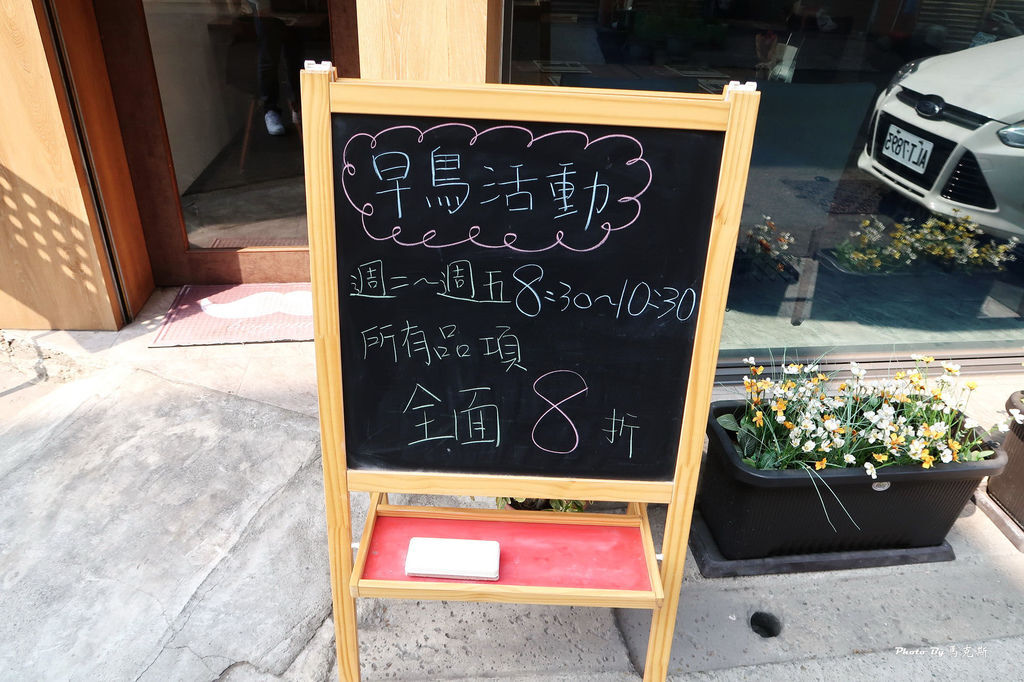 早鳥活動
週二~週五8:30~10:30
所有品項
全面 8 折
Photo By 馬克斯